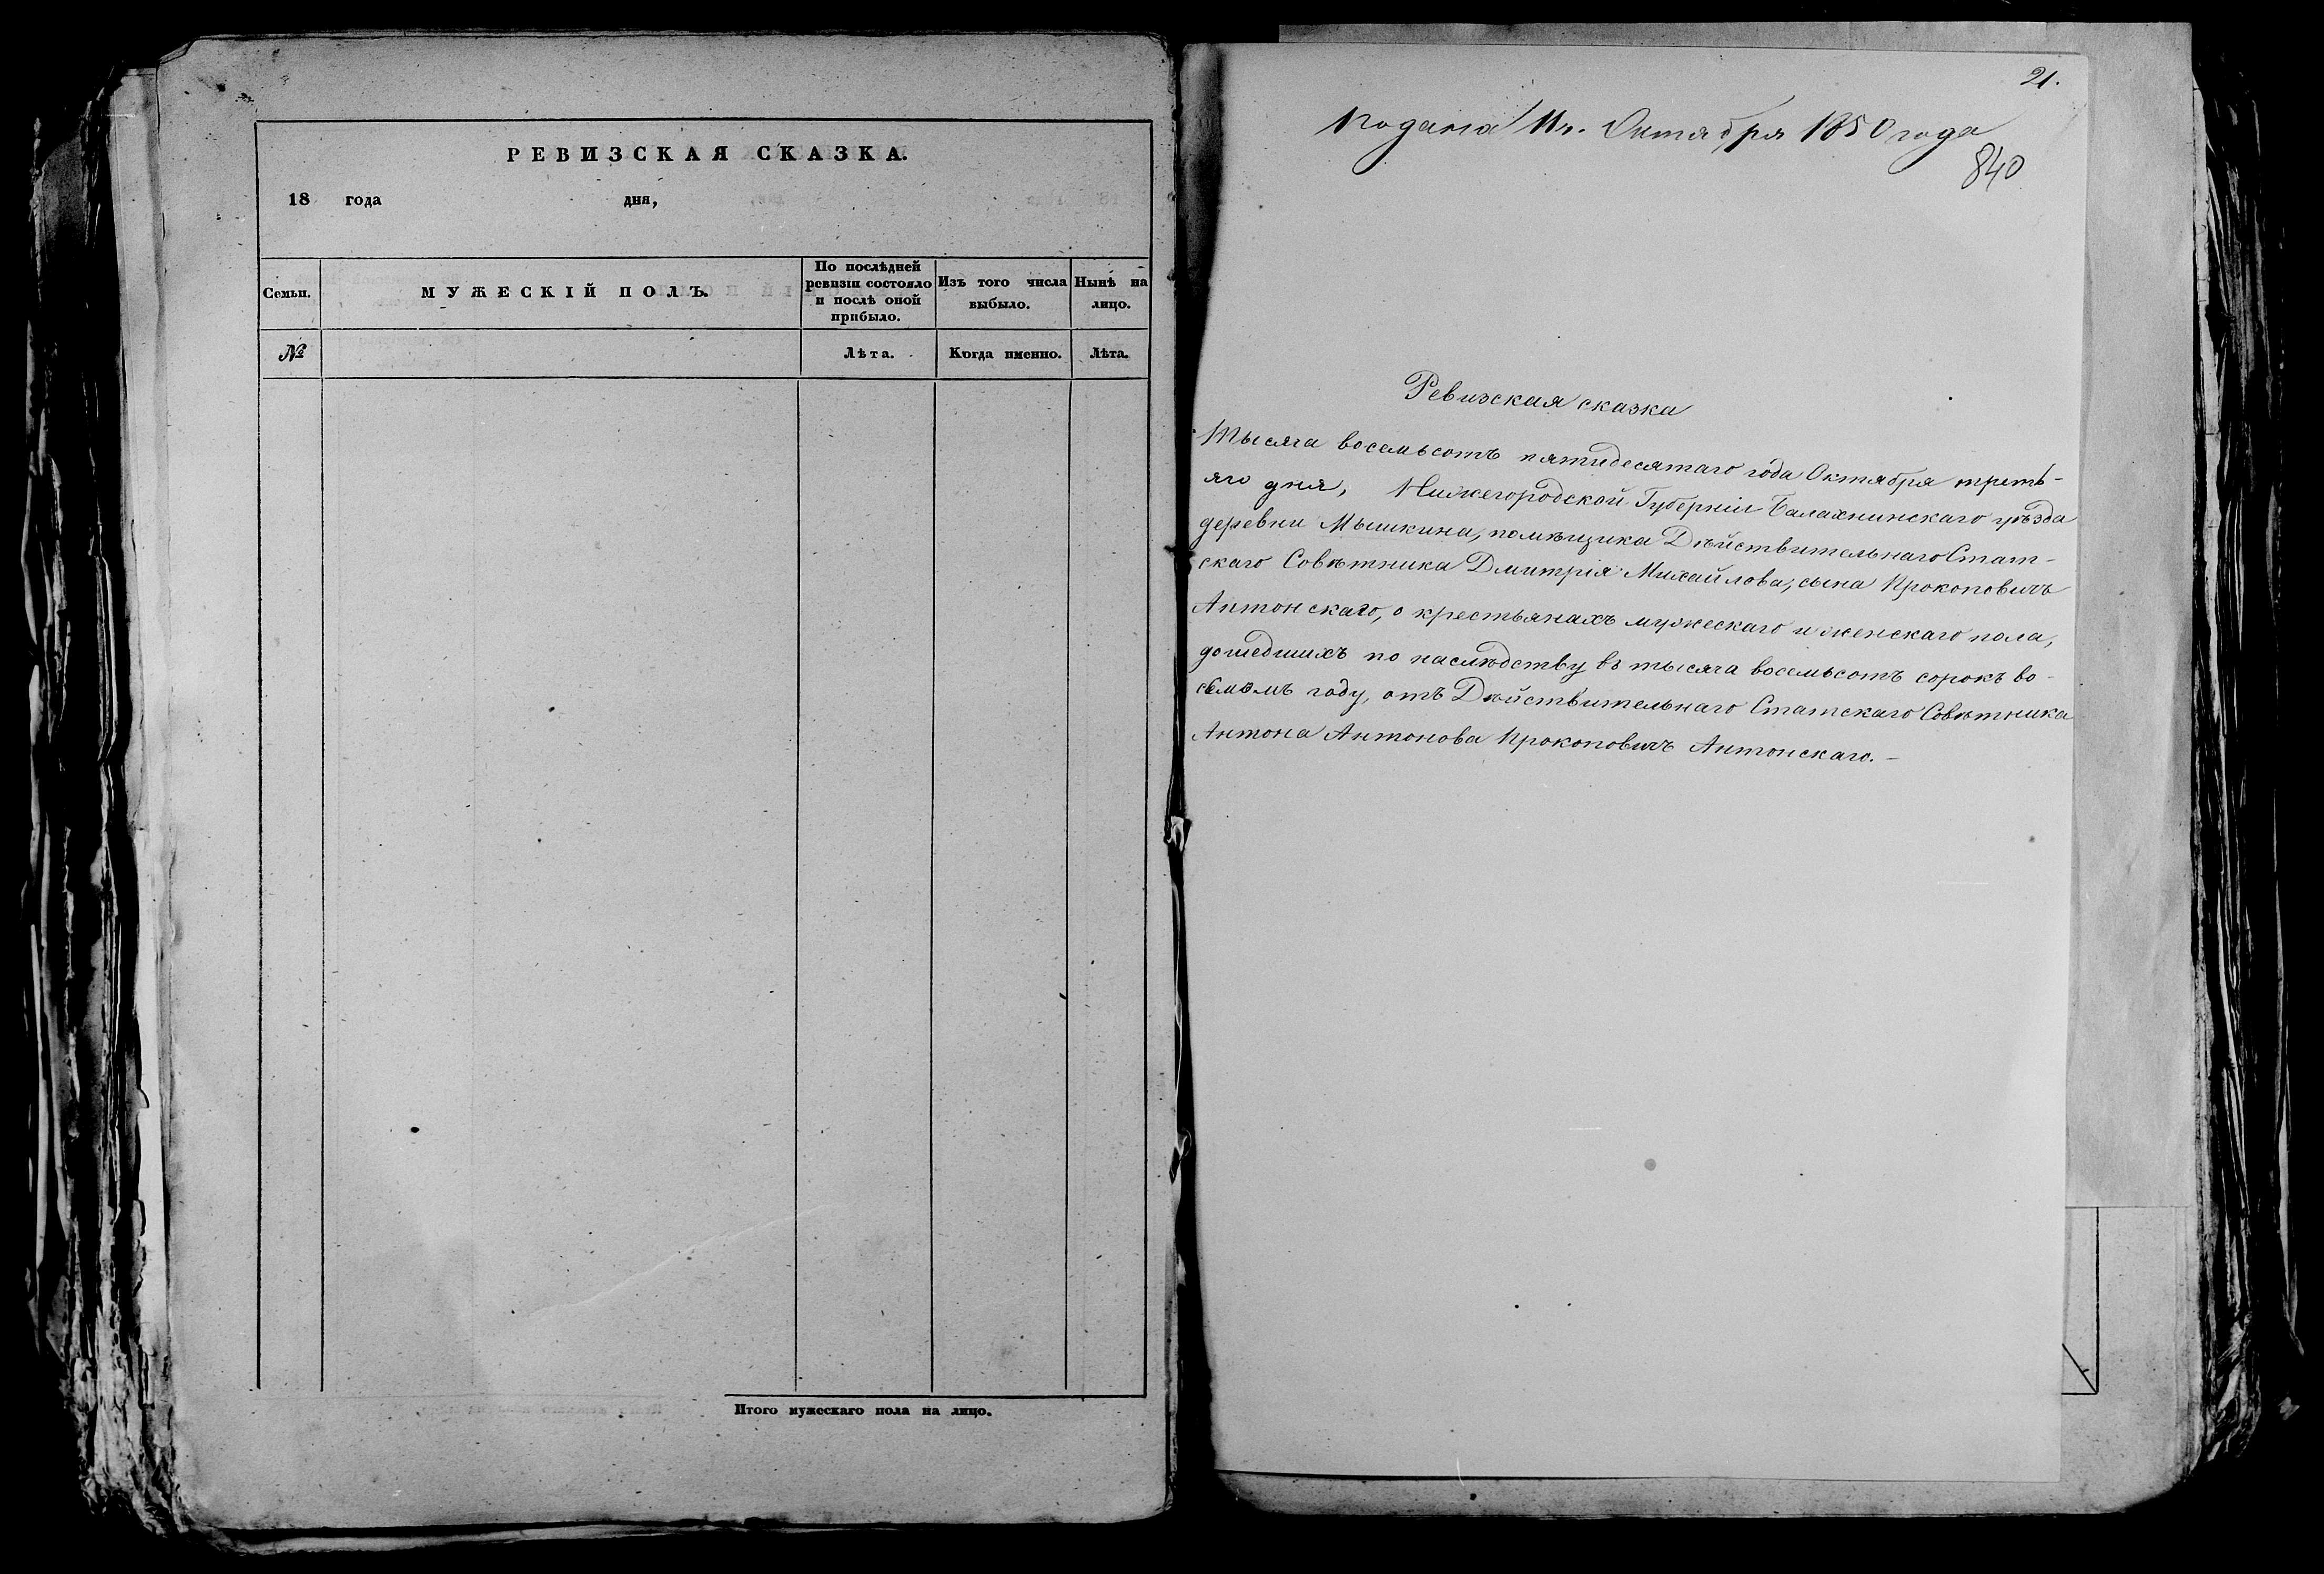 РЕВИЗСКАЯ СКАЗКА.
18 года дня,
Семьи.
МУЖЕСКІЙ ПОЛЪ.
По послѣдней
ревизіи состояло
и послѣ оной
прибыло.
Изъ того числа
выбыло.
Нынѣ на
лицо.
№
Лѣта.
Когда именно.
Лѣта.
Итого мужескаго пола на лицо.
21.
Подана 11го Октября 1850 года
840
Ревизская сказка
Тысяча восемьсотъ пятидесятаго года Октября треть-
яго дня, Нижегородской Губерніи Балахнинскаго уѣзда
деревни Мышкина, помѣщика Дѣйствительнаго Стат-
скаго Совѣтника Дмитрія Михайлова, сына Прокоповичъ
Антонскаго, о крестьянахъ мужескаго и женскаго пола,
дошедшихъ по наслѣдству въ тысяча восемьсотъ сорокъ во-
семомъ году, отъ Дѣйствительнаго Статскаго Совѣтника
Антона Антонова Прокоповичъ Антонскаго. –